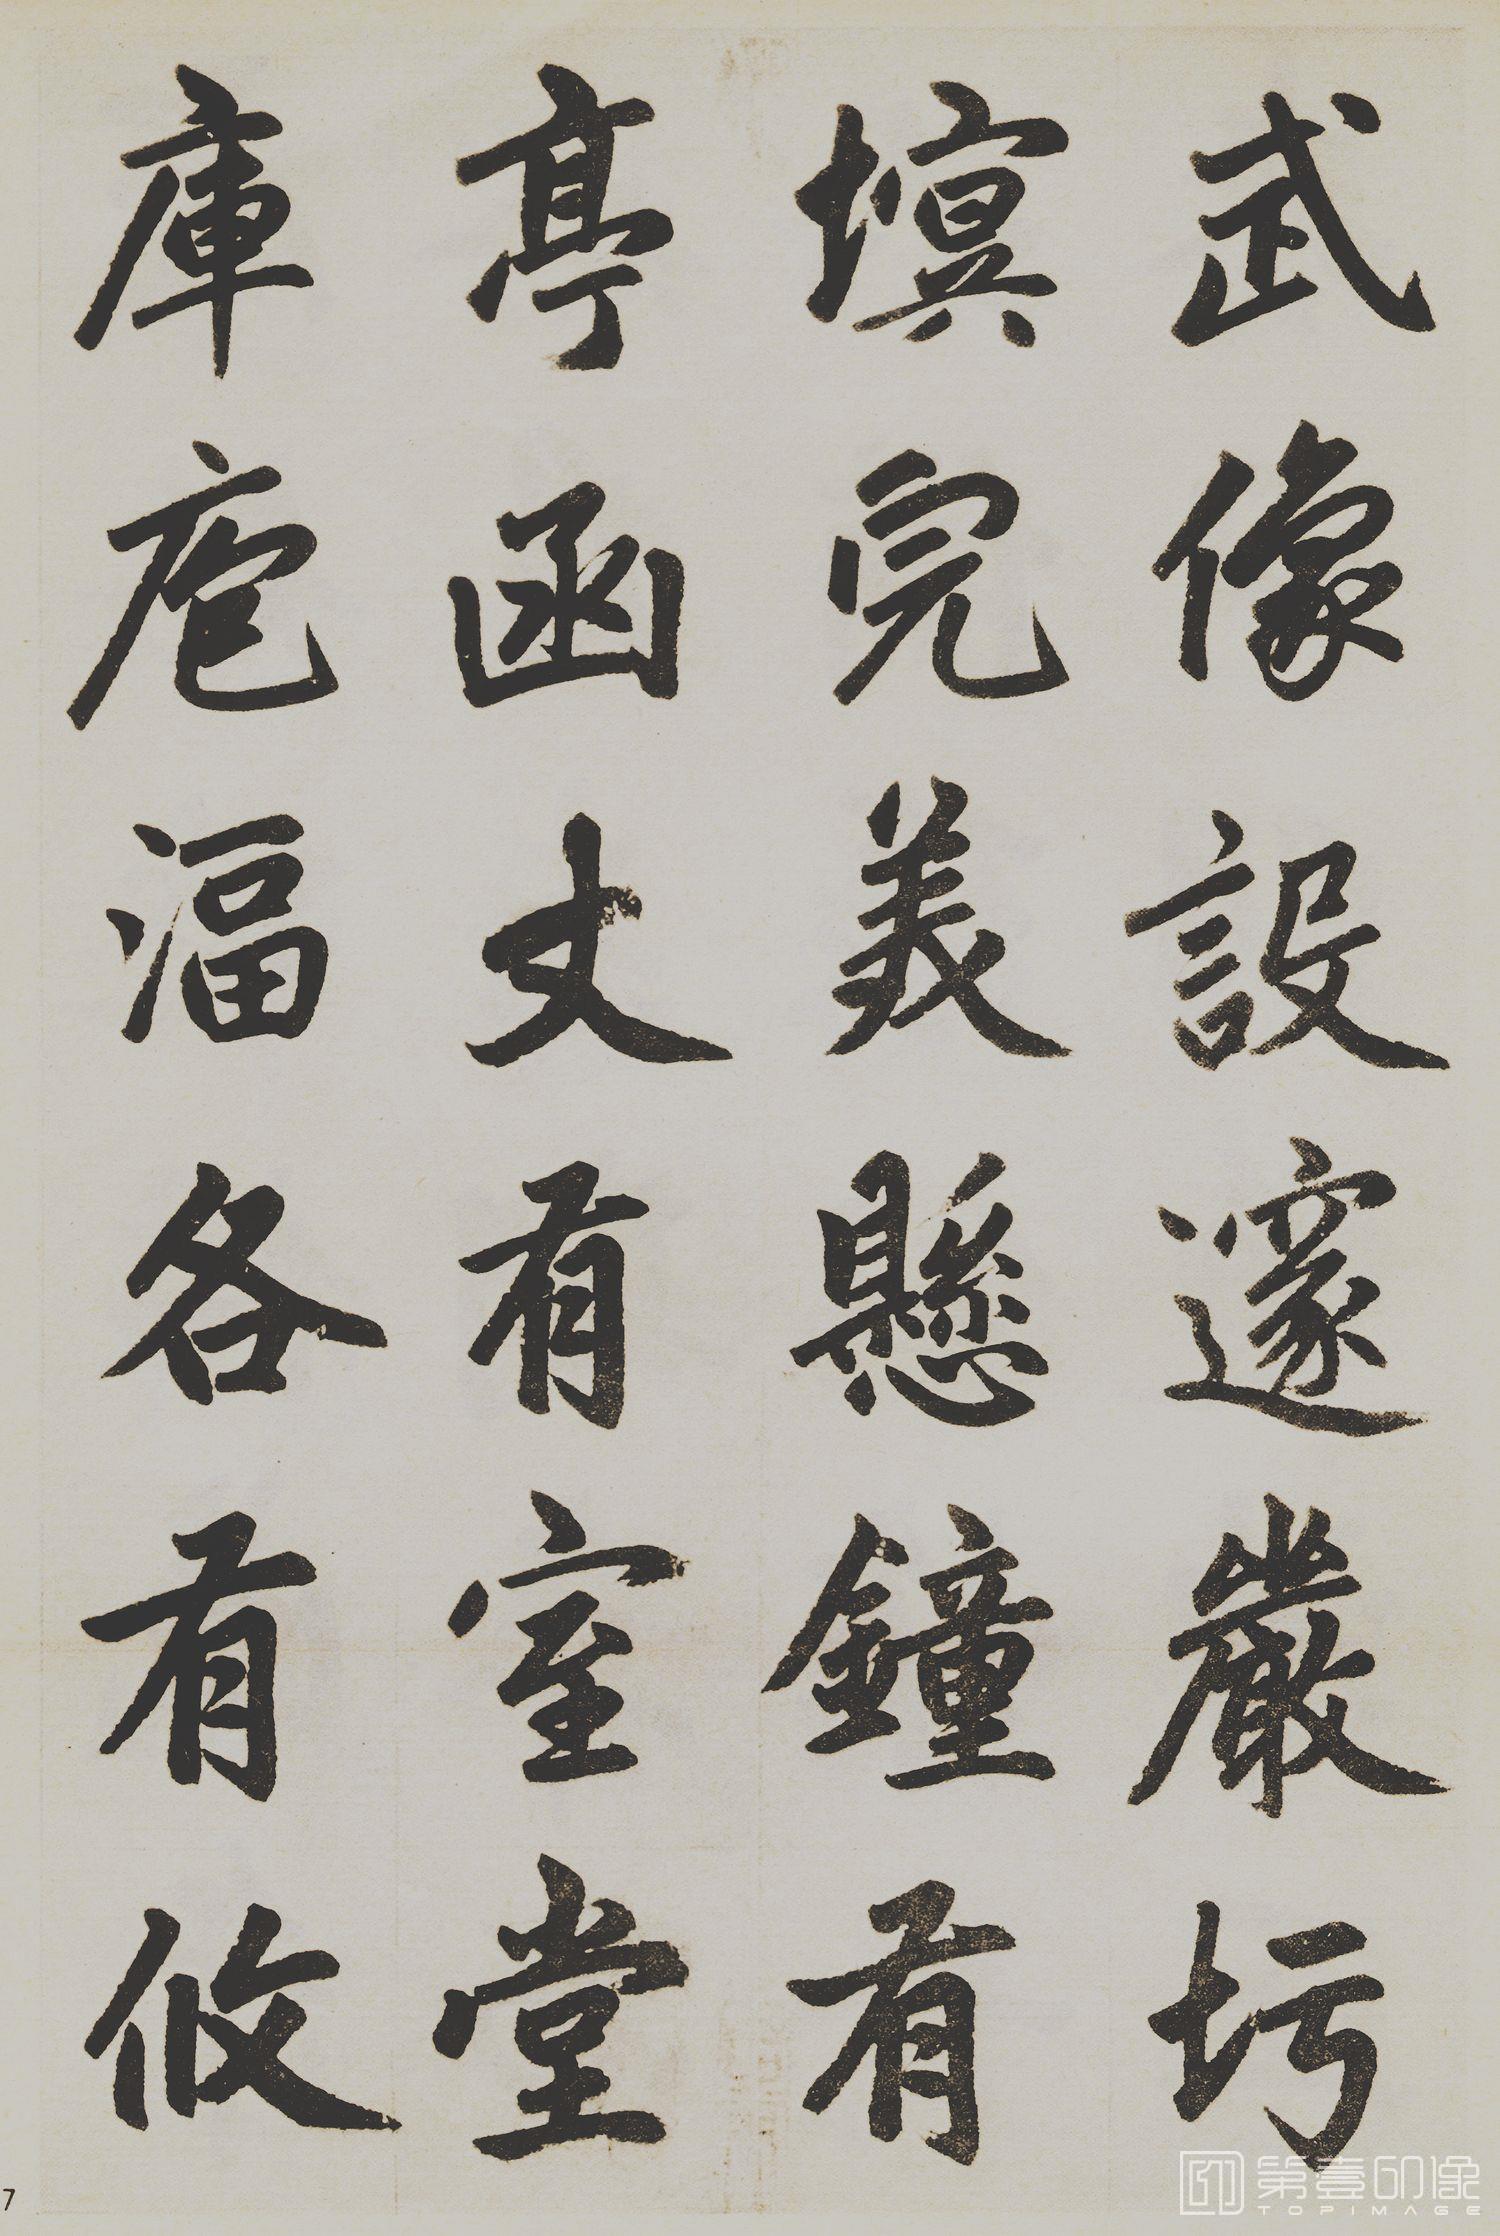 武像設邃嚴圬
塓完美懸鐘有
亭函丈有室堂
庫庖湢各有攸
7
第壹印像
TOPIMAGE